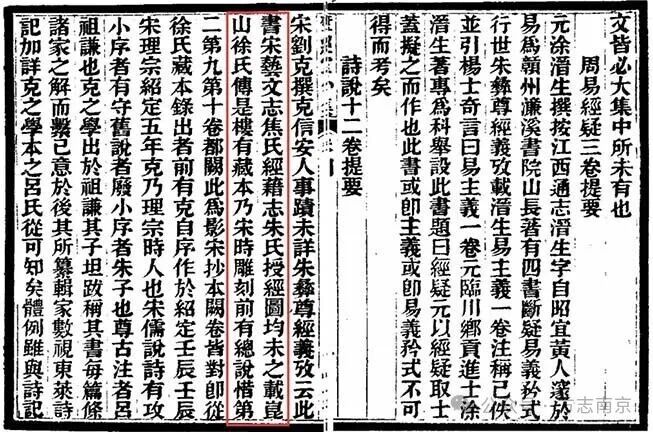 文皆必大集中所未有也
周易經疑三卷提要
元涂溍生撰按江西通志溍生字自昭宜黃人邃於
易爲贛州濂溪書院山長著有四書斷疑易義矜式
行世朱彝尊經義攷載溍生易主義一卷注稱已佚
並引楊士奇言曰易主義一卷元臨川鄉貢進士涂
溍生著專爲科舉設此書題曰經疑元以經疑取士
蓋擬之而作也此書或卽主義或卽易義矜式不可
得而考矣
詩說十二卷提要
宋劉克撰克信安人事蹟未詳朱彝尊經義攷云此
書宋藝文志焦氏經籍志朱氏授經圖均未之載崑
山徐氏傳是樓有藏本乃宋時雕刻前有總說惜第
二第九第十卷都闕此爲影宋抄本闕卷皆對卽從
徐氏藏本錄出者前有克自序作於紹定壬辰壬辰
宋理宗紹定五年克乃理宗時人也宋儒說詩有攻
小序者有守舊說者廢小序者朱子也尊古注者呂
祖謙也克之學出於祖謙其子坦跋稱其書每篇條
諸家之解而繫己意於後其所纂輯家數視東萊詩
記加詳克之學本之呂氏從可知矣體例雖與詩記
公众号 · 方志南京